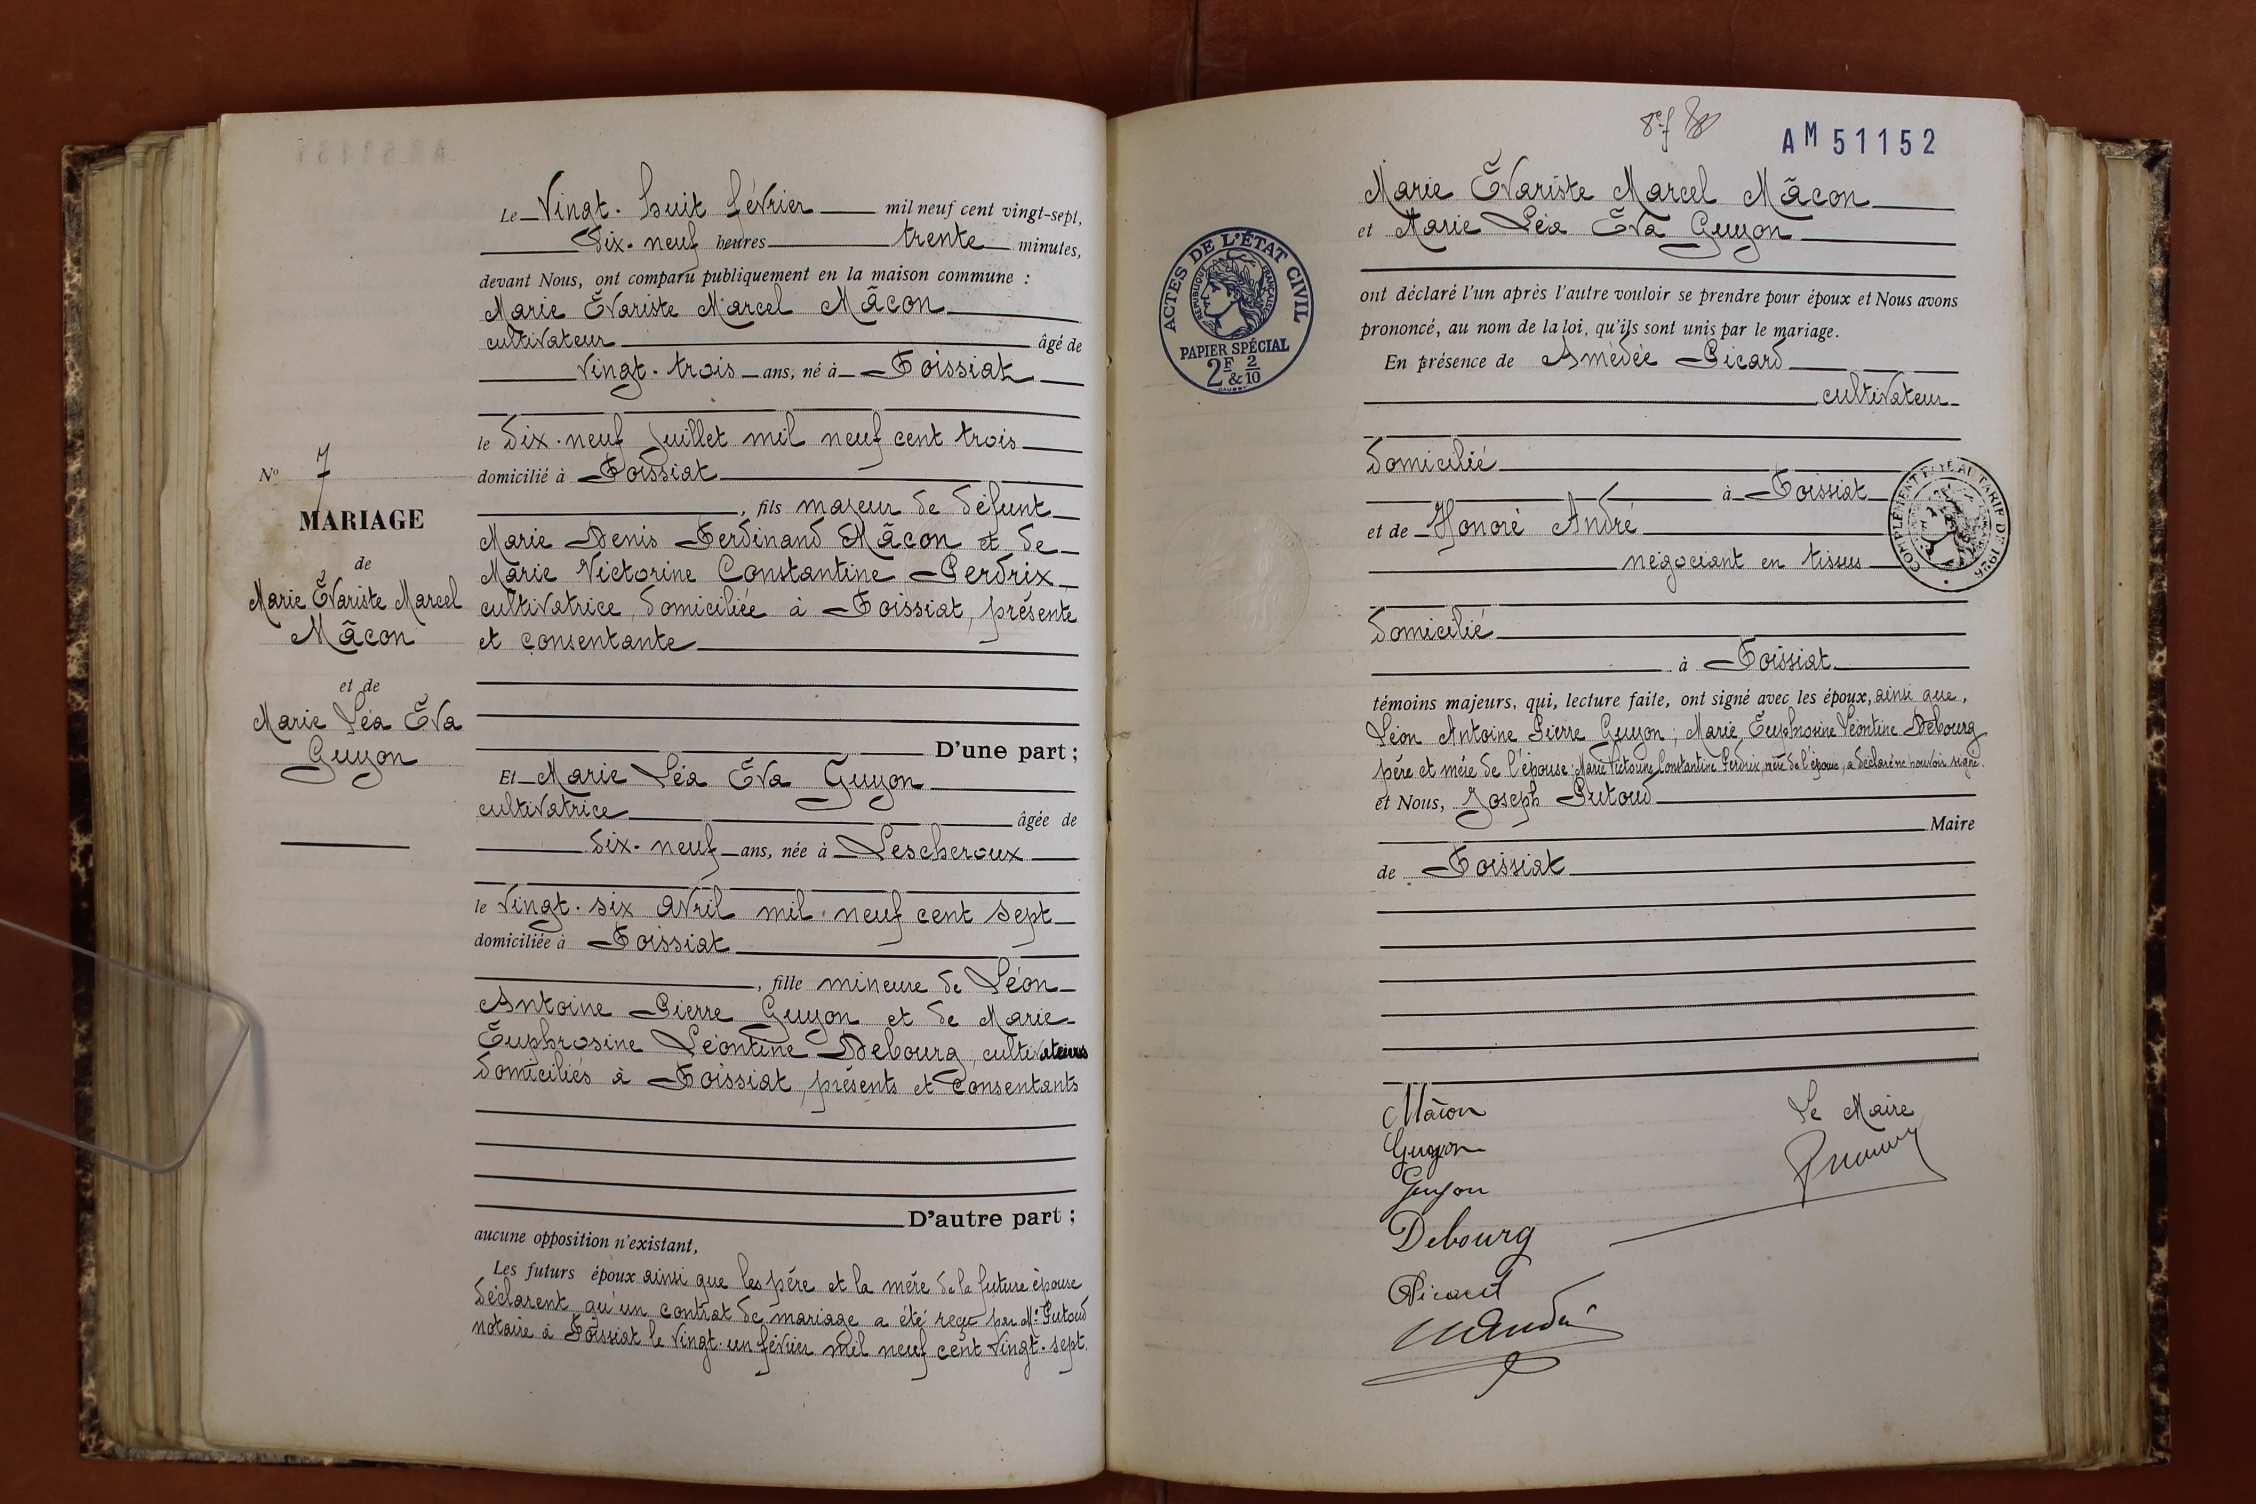 N° 7
MARIAGE
de
Marie Évariste Marcel
Mâcon
et de
Marie Léa Éva
Guyon
Le Vingt-huit février mil neuf cent vingt-sept,
dix-neuf heures trente minutes,
devant Nous, ont comparu publiquement en la maison commune :
Marie Évariste Marcel Mâcon
cultivateur âgé de
vingt-trois ans, né à Foissiat
le dix-neuf juillet mil neuf cent trois
domicilié à Foissiat
, fils majeur de défunt
Marie Denis Ferdinand Mâcon et de
Marie Victorine Constantine Perdrix
cultivatrice, domiciliée à Foissiat, présente
et consentante
D'une part ;
Et Marie Léa Éva Guyon
cultivatrice âgée de
dix-neuf ans, née à Lescheroux
le vingt-six avril mil neuf cent sept
domiciliée à Foissiat
, fille mineure de Léon
Antoine Pierre Guyon et de Marie
Euphrosine Léontine Debourg, cultivateurs
domiciliés à Foissiat, présents et consentants
D'autre part ;
aucune opposition n'existant,
Les futurs époux ainsi que les père et la mère de la future épouse
déclarent qu'un contrat de mariage a été reçu par Me Putoud
notaire à Foissiat le vingt-un février mil neuf cent vingt-sept.
AM 51152
Marie Évariste Marcel Mâcon
et Marie Léa Éva Guyon
ACTES DE L'ÉTAT CIVIL
RÉPUBLIQUE FRANÇAISE
PAPIER SPÉCIAL
2F & 2/10
ont déclaré l'un après l'autre vouloir se prendre pour époux et Nous avons
prononcé, au nom de la loi, qu'ils sont unis par le mariage.
En présence de Amédée Picard
cultivateur
domicilié
à Foissiat
COMPLÉMENT TARIF DE 1926
et de Honoré André
négociant en tissus
domicilié
à Foissiat
témoins majeurs, qui, lecture faite, ont signé avec les époux, ainsi que,
Léon Antoine Pierre Guyon ; Marie Euphrosine Léontine Debourg
père et mère de l'épouse ; Marie Victorine Constantine Perdrix, mère de l'époux, a déclaré ne pouvoir signer.
et Nous, Joseph Putoud
Maire
de Foissiat
Mâcon
Guyon
Guyon
Debourg
Picard
Le Maire